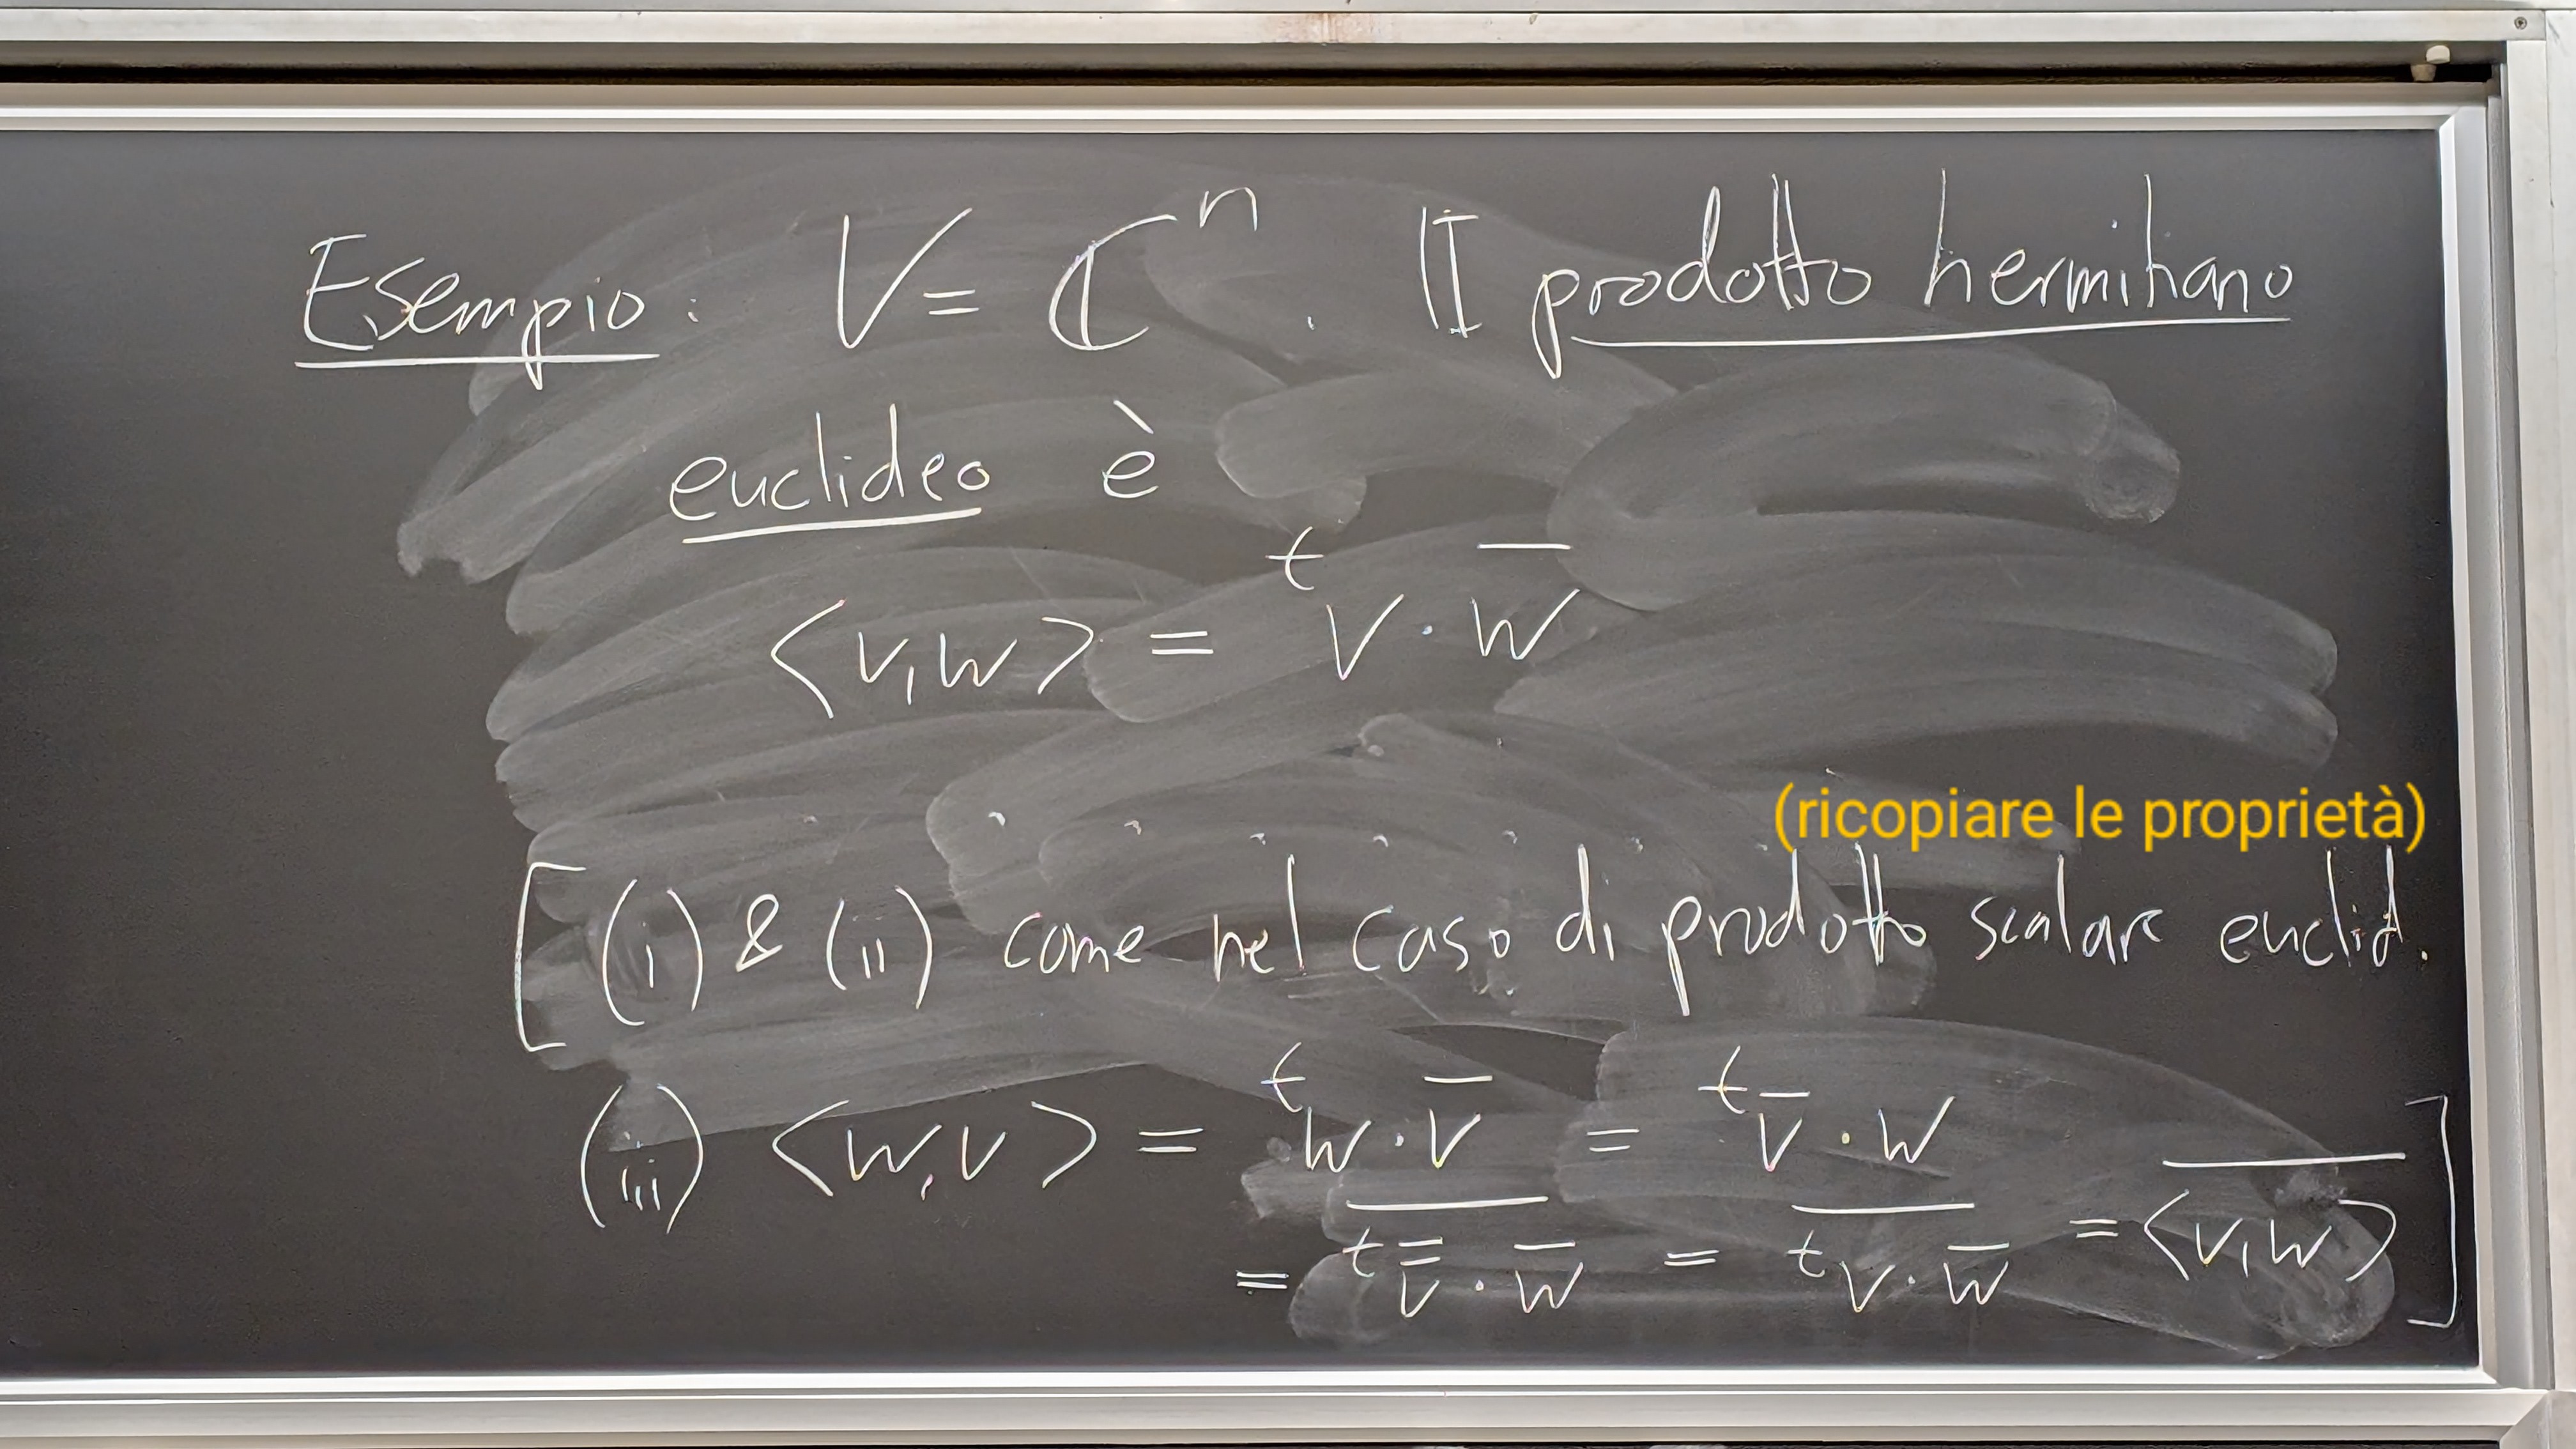 Esempio: V = ℂⁿ. Il prodotto hermitiano
euclideo è
<v,w> = ᵗv · w̅
(ricopiare le proprietà)
[(i) & (ii) come nel caso di prodotto scalare euclid.
(iii) <w,v> = ᵗw · v̅ = ᵗv̅ · w
= \overline{ᵗ\overline{\overline{v}} · \overline{w}} = \overline{ᵗv · \overline{w}} = \overline{<v,w>} ]